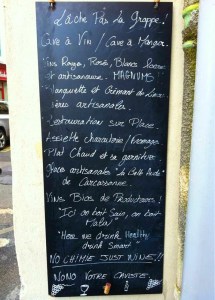 Lâche Pas La Grappe !
Cave à Vin / Cave à Manger.
Vins Rouge, Rosé, Blanc
et artisanaux. MAGNUMS
Blanquette et Crémant de
artisanales.
Restauration sur Place.
Assiette Charcuterie / Fromages
Plat Chaud et sa garniture
Glaces artisanales "La Belle Aude"
de Carcassonne.
Vins Bios de Producteurs !
"Ici on boit Sain, on boit
Malin"
"Here we drink Healthy
drink Smart"
NO CHIMIE JUST WINE !!
NONO VOTRE CAVISTE.